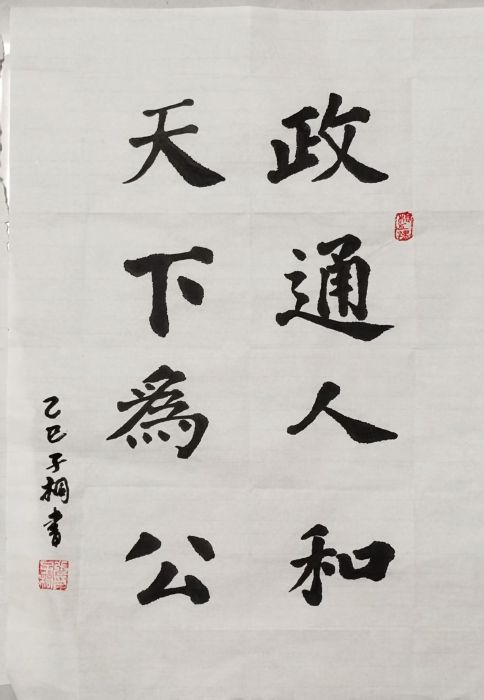 政通人和
天下為公
乙巳子桐書